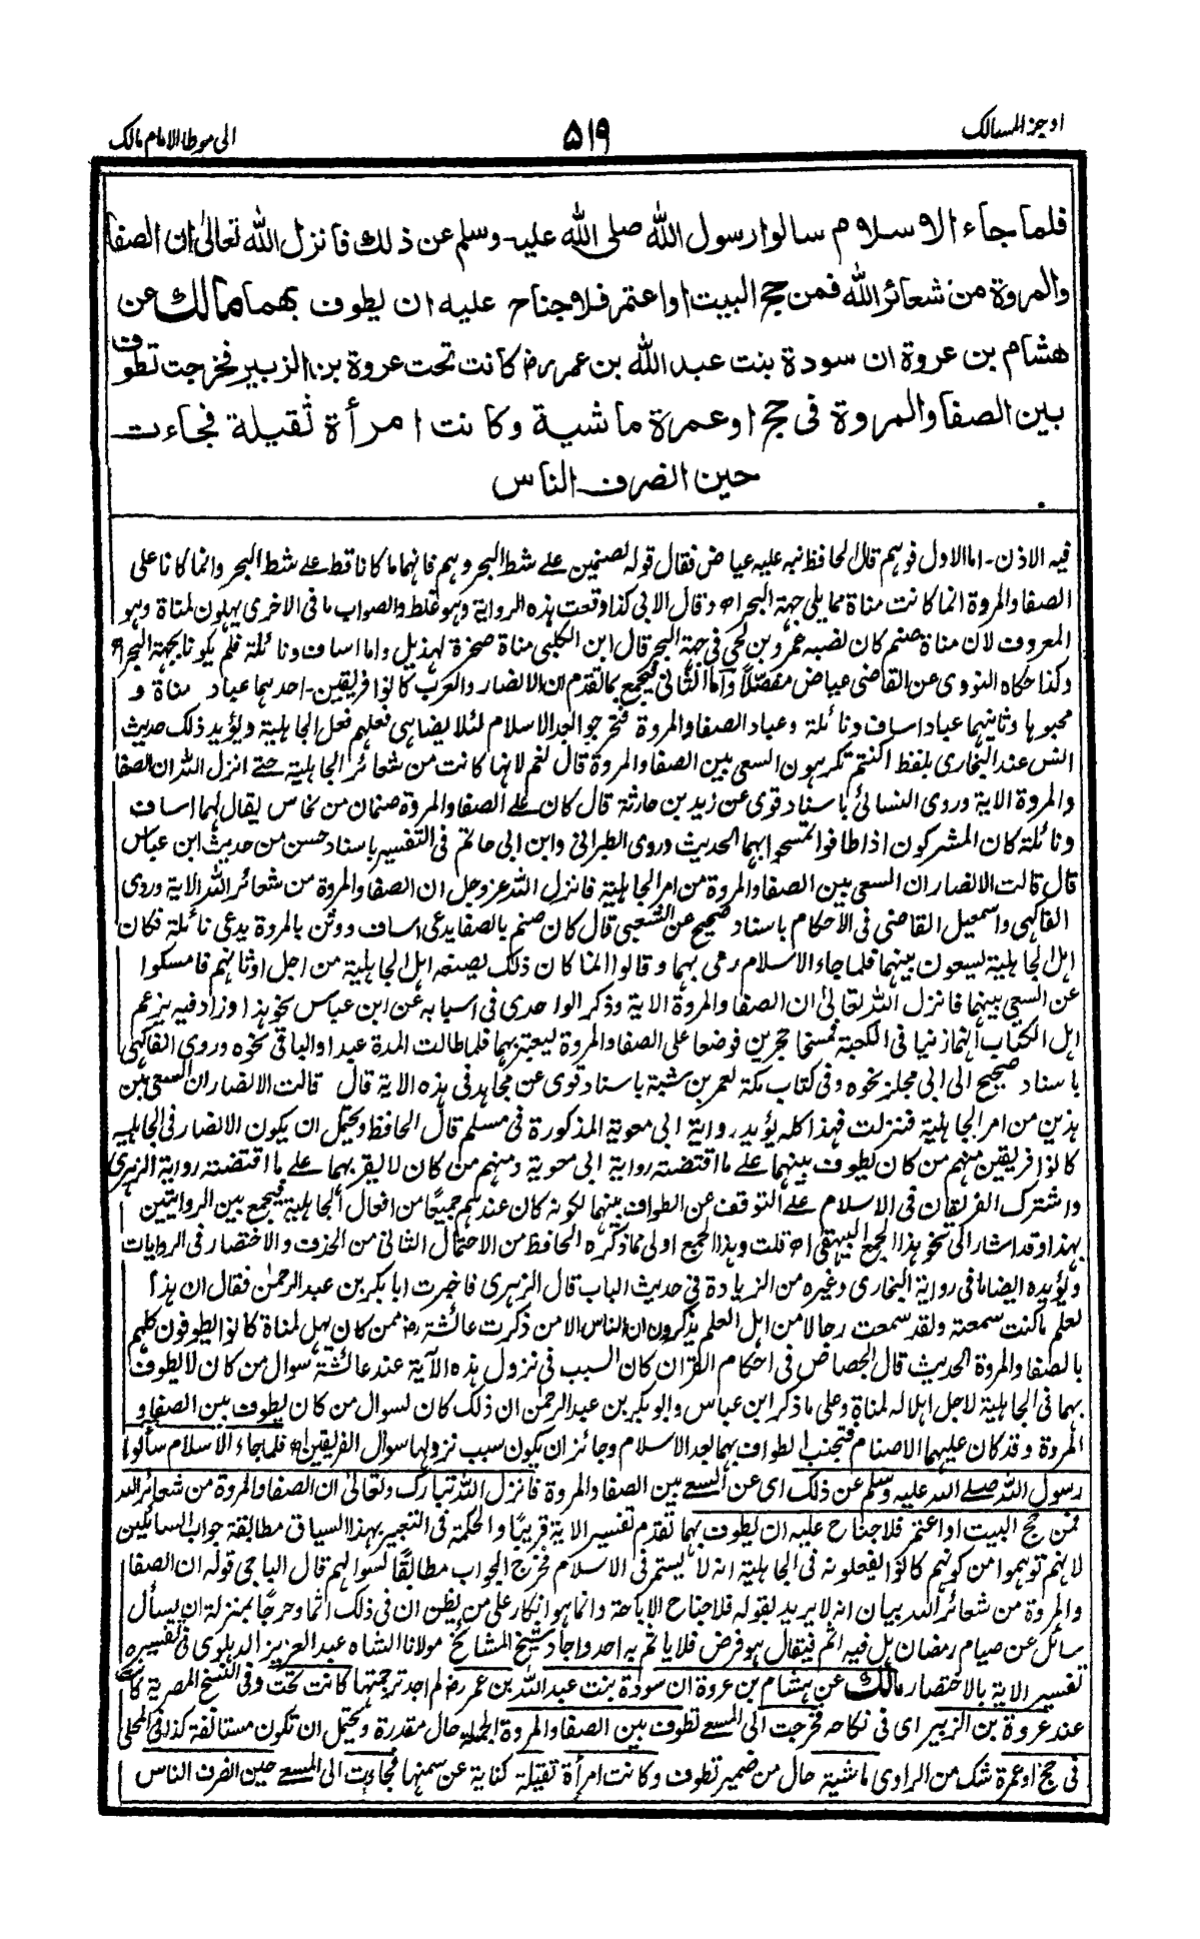 اوجز المسالک
٥١٩
الی موطا الامام مالک
فلما جاء الاسلام سالوا رسول الله صلى الله عليه وسلم عن ذلك فانزل الله تعالى ان الصفا
والمروة من شعائر الله فمن حج البيت او اعتمر فلا جناح عليه ان يطوف بهما مالك عن
هشام بن عروة ان سودة بنت عبد الله بن عمر رض كانت تحت عروة بن الزبير فخرجت تطوف
بين الصفا والمروة فى حج او عمرة ماشية وكانت امرأة ثقيلة فجاءت
حين انصرف الناس
فيه الاذن۔ اما الاول فوهم قال الحافظ نبه عليه عياض فقال قوله لصنمين على شط البحر وهم فانهما ما كانا قط على شط البحر وانما كانا على
الصفا والمروة انما كانت مناة مما يلى جهة البحر اه وقال الابى كذا وقعت هذه الرواية وهو غلط والصواب ما فى الاخرى يهلون لمناة وهو
المعروف لان مناة صنم كان نصبه عمرو بن لحى فى جهة البحر قال ابن الكلبى مناة صخرة لهذيل واما اساف ونائلة فلم يكونا بجهة البحر اه
وكذا حكاه النووى عن القاضى عياض مفصلا واما الثانى فيجمع بما تقدم ان الانصار والعرب كانوا فريقين۔ احدهما عباد مناة و
محبوها وثانيهما عباد اساف ونائلة وعباد الصفا والمروة فتحرجوا بعد الاسلام لئلا يضاهى فعلهم فعل الجاهلية ويؤيد ذلك حديث
انس عند البخارى بلفظ اكنتم تكرهون السعى بين الصفا والمروة قال نعم لانها كانت من شعائر الجاهلية حتى انزل الله ان الصفا
والمروة الاية وروى النسائى باسناد قوى عن زيد بن حارثة قال كان على الصفا والمروة صنمان من نحاس يقال لهما اساف
ونائلة كان المشركون اذا طافوا تمسحوا بهما الحديث وروى الطبرانى وابن ابى حاتم فى التفسير باسناد حسن من حديث ابن عباس
قال قالت الانصار ان السعى بين الصفا والمروة من امر الجاهلية فانزل الله عز وجل ان الصفا والمروة من شعائر الله الاية وروى
الفاكهى واسمعيل القاضى فى الاحكام باسناد صحيح عن الشعبى قال كان صنم بالصفا يدعى اساف ووثن بالمروة يدعى نائلة فكان
اهل الجاهلية يسعون بينهما فلما جاء الاسلام رمى بهما وقالوا انما كان ذلك يصنعه اهل الجاهلية من اجل اوثانهم فامسكوا
عن السعى بينهما فانزل الله تعالى ان الصفا والمروة الاية وذكر الواحدى فى اسبابه عن ابن عباس نحو هذا وزاد فيه يزعم
اهل الكتاب انهما زنيا فى الكعبة فمسخا حجرين فوضعا على الصفا والمروة ليعتبر بهما فلما طالت المدة عبدا والباقى نحوه وروى الفاكهى
باسناد صحيح الى ابى مجلز نحوه وفى كتاب مكة لعمر بن شبة باسناد قوى عن مجاهد فى هذه الاية قال قالت الانصار ان السعى بين
هذين من امر الجاهلية فنزلت فهذا كله يؤيد رواية ابى معوية المذكورة فى مسلم قال الحافظ ويحتمل ان يكون الانصار فى الجاهلية
كانوا فريقين منهم من كان يطوف بينهما على ما اقتضته رواية ابى معوية ومنهم من كان لا يقربهما على ما اقتضته رواية الزهرى
واشترك الفريقان فى الاسلام على التوقف عن الطواف بينهما لكونه كان عندهم جميعا من افعال الجاهلية فيجمع بين الروايتين
بهذا وقد اشار الى نحو هذا الجمع البيهقى اه قلت وهذا الجمع اولى مما ذكره الحافظ من الاحتمال الثانى من الحذف والاختصار فى الروايات
ويؤيده ايضا ما فى رواية البخارى وغيره من الزيادة فى حديث الباب قال الزهرى فاخبرت ابا بكر بن عبد الرحمن فقال ان هذا
لعلم ما كنت سمعته ولقد سمعت رجالا من اهل العلم يذكرون ان الناس الا من ذكرت عائشة رض ممن كان يهل لمناة كانوا يطوفون كلهم
بالصفا والمروة الحديث قال الجصاص فى احكام القران كان السبب فى نزول هذه الآية عند عائشة سوال من كان لا يطوف
بهما فى الجاهلية لاجل اهلاله لمناة وعلى ما ذكر ابن عباس وابو بكر بن عبد الرحمن ان ذلك كان لسوال من كان يطوف بين الصفا و
المروة وقد كان عليهما الاصنام فتجنب الطواف بهما بعد الاسلام وجائز ان يكون سبب نزولها سوال الفريقين اه فلما جاء الاسلام سألوا
رسول الله صلى الله عليه وسلم عن ذلك اى عن السعى بين الصفا والمروة فانزل الله تبارك وتعالى ان الصفا والمروة من شعائر الله
فمن حج البيت او اعتمر فلا جناح عليه ان يطوف بهما تقدم تفسير الاية قريبا والحكمة فى التعبير بهذا السياق مطابقة جواب السائلين
لانهم توهموا من كونهم كانوا يفعلونه فى الجاهلية انه لا يستمر فى الاسلام فخرج الجواب مطابقا لسوالهم قال الباجى قوله ان الصفا
والمروة من شعائر الله بيان انه لا يريد بقوله فلا جناح الاباحة وانما هو انكار على من يظن ان فى ذلك اثما وحرجا بمنزلة ان يسأل
سائل عن صيام رمضان هل فيه اثم فيقال هو فرض فلا ياثم به احد واجاد شيخ المشائخ مولانا الشاه عبد العزيز الدهلوى فى تفسيره
تفسير الاية بالاختصار مالك عن هشام بن عروة ان سودة بنت عبد الله بن عمر رض لم اجد ترجمتها كانت تحت وفى النسخ المصرية كانت
عند عروة بن الزبير اى فى نكاحه فخرجت الى المسعى تطوف بين الصفا والمروة الجملة حال مقدرة ويحتمل ان تكون مستانفة كذا فى المحلى
فى حج او عمرة شك من الراوى ماشية حال من ضمير تطوف وكانت امرأة ثقيلة كناية عن سمنها فجاءت الى المسعى حين انصرف الناس